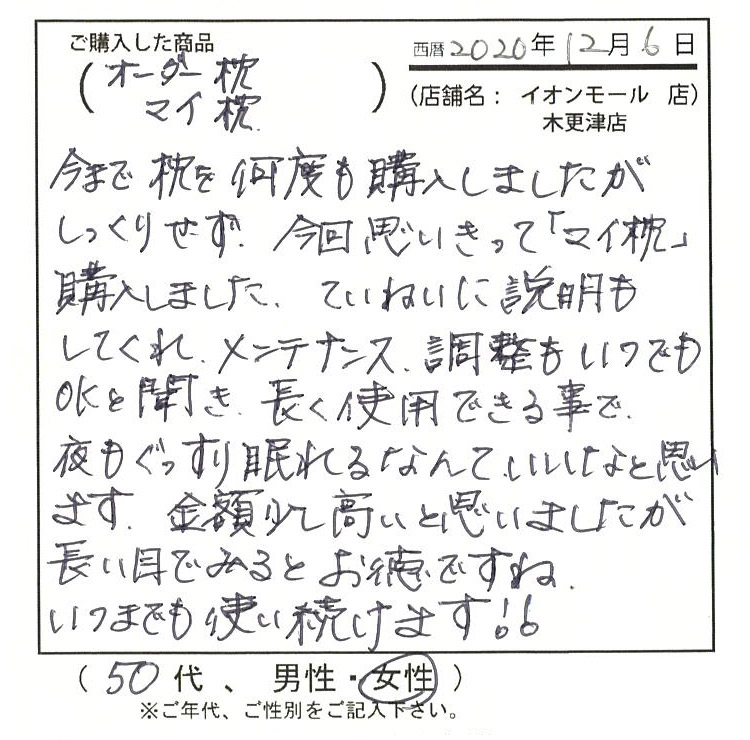 ご購入した商品
(オーダー枕
マイ枕)
西暦2020年12月6日
(店舗名： イオンモール 店)
木更津店
今まで枕を何度も購入しましたが
しっくりせず、今回思いきって「マイ枕」
購入しました、ていねいに説明も
してくれ、メンテナンス、調整もいつでも
OKと聞き、長く使用できる事で、
夜もぐっすり眠れるなんて、いいなと思い
ます、金額少し高いと思いましたが
長い目でみるとお徳ですね、
いつまでも使い続けます!!
(50代、男性・女性)
※ご年代、ご性別をご記入下さい。